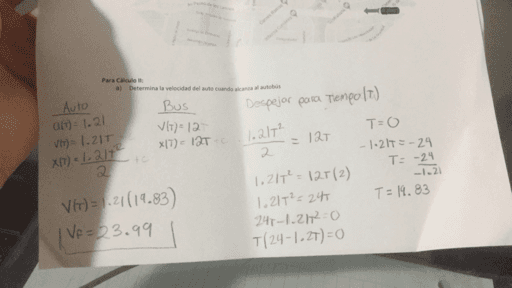 Para Cálculo II:
a) Determina la velocidad del auto cuando alcanza al autobus
Auto
a(t) = 1.21
V(T) = 1.21T
X(T) = 1.21T² + c
2
V(T) = 1.21(19.83)
VF = 23.99
Bus
V(T) = 12
X(T) = 12T + c
Despejar para Tiempo (T)
1.21T² = 12T
2
1.21T² = 12T(2)
1.21T² = 24T
24T - 1.21T² = 0
T(24 - 1.2T) = 0
T = 0
-1.21T = -24
T = -24
-1.21
T = 19.83